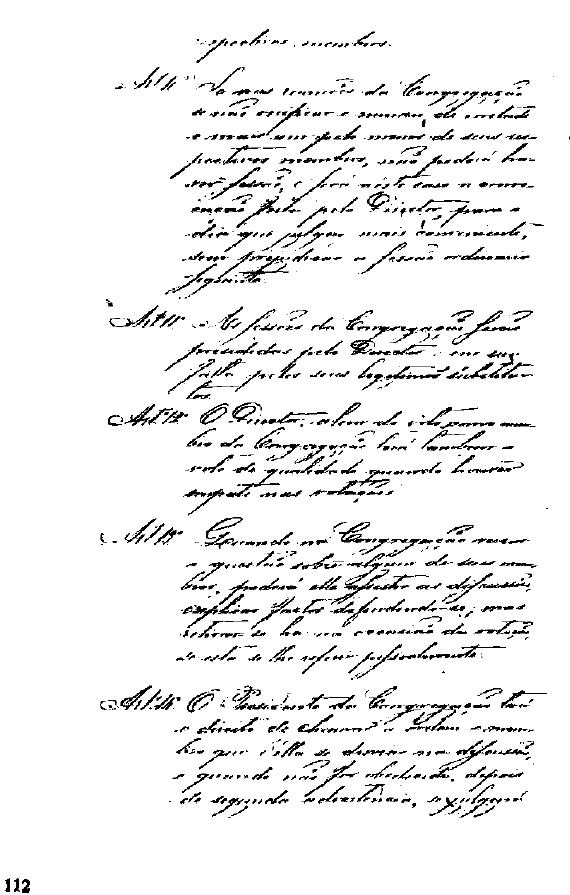 spectivos membros.
Art. Se nas reuniões da Congregação
se não verificar o numero, de metade
e mais um pelo menos de seus res-
pectivos membros, não poderá ha-
ver sessão, e será n'este caso a convo-
cação feita pelo Director, para o
dia que julgar mais conveniente,
sem prejudicar a sessão ordinaria
seguinte.
Art. 11º As sessões da Congregação serão
presididas pelo Director, em sua
falta pelos seus legitimos substitu-
tos.
Art. 12º O Director, alem do voto como mem-
bro da Congregação terá tambem o
voto de qualidade quando houver
empate nas votações.
Art. 13º Quando na Congregação
a questão sobre algum de seus mem-
bros, poderá elle assistir as discussão,
explicar factos defendendo-se; mas
retirar-se ha na occasião da votação,
se esta se lhe referir pessoalmente.
Art. 14º O Presidente da Congregação terá
o direito de chamar a ordem o mem-
bro que d'ella se desviar na discussão,
e quando não for obedecido, depois
de segunda advertencia,
112